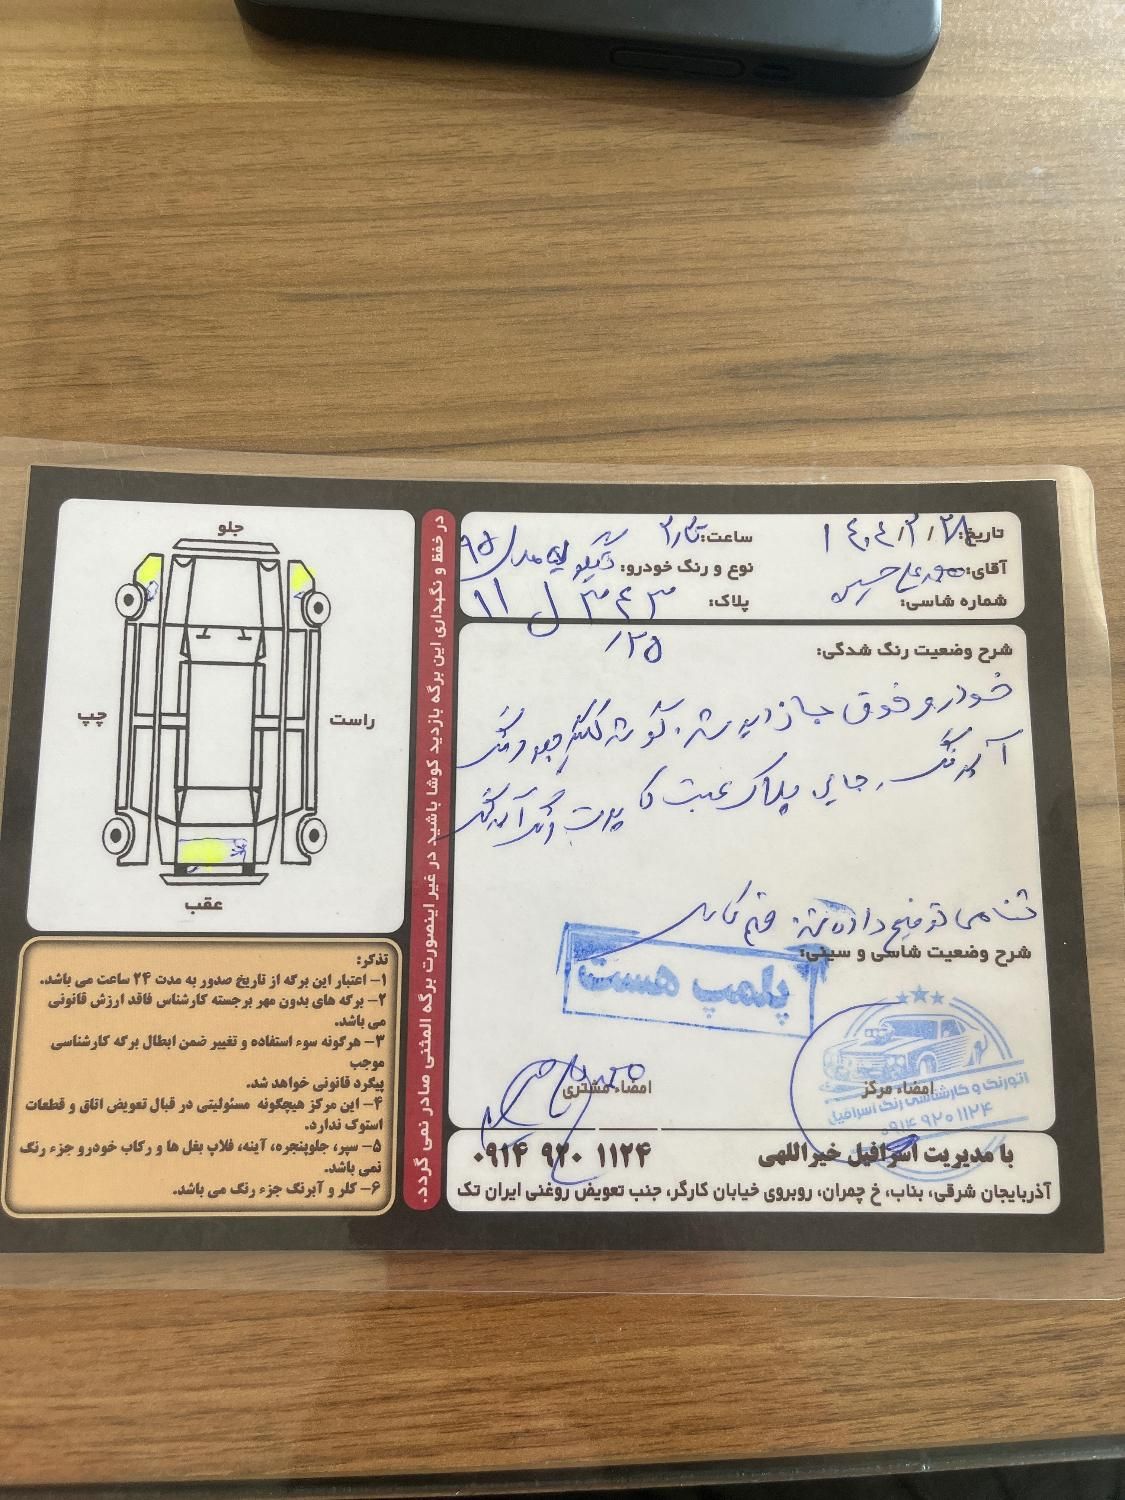 تاریخ: ۱۴۰۴/۲/۲۸
ساعت:
آقای: محمدعلی حسین
نوع و رنگ خودرو: مدل ۹۵
شماره شاسی:
پلاک: ۱۱ ل ۳۴۳
۲۵
شرح وضعیت رنگ شدگی:
خودرو فوق بازدید شد. گوشه گلگیر جلو رنگ
آبرنگ، جای پلاک عقب
تمامی توضیح داده شد
شرح وضعیت شاسی و سینی:
امضاء مرکز
امضاء مشتری
اتورنگ و کارشناسی رنگ اسرافیل
۰۹۱۴ ۹۲۰ ۱۱۲۴
با مدیریت اسرافیل خیراللهی
۰۹۱۴ ۹۲۰ ۱۱۲۴
آذربایجان شرقی، بناب، خ چمران، روبروی خیابان کارگر، جنب تعویض روغنی ایران تک
در حفظ و نگهداری این برگه بازدید کوشا باشید در غیر اینصورت برگه المثنی صادر نمی گردد.
جلو
چپ
راست
عقب
تذکر:
۱- اعتبار این برگه از تاریخ صدور به مدت ۲۴ ساعت می باشد.
۲- برگه های بدون مهر برجسته کارشناس فاقد ارزش قانونی
می باشد.
۳- هرگونه سوء استفاده و تغییر ضمن ابطال برگه کارشناسی
موجب
پیگرد قانونی خواهد شد.
۴- این مرکز هیچگونه مسئولیتی در قبال تعویض اتاق و قطعات
استوک ندارد.
۵- سپر، جلوپنجره، آینه، فلاپ بغل ها و رکاب خودرو جزء رنگ
نمی باشد.
۶- کلر و آبرنگ جزء رنگ می باشد.